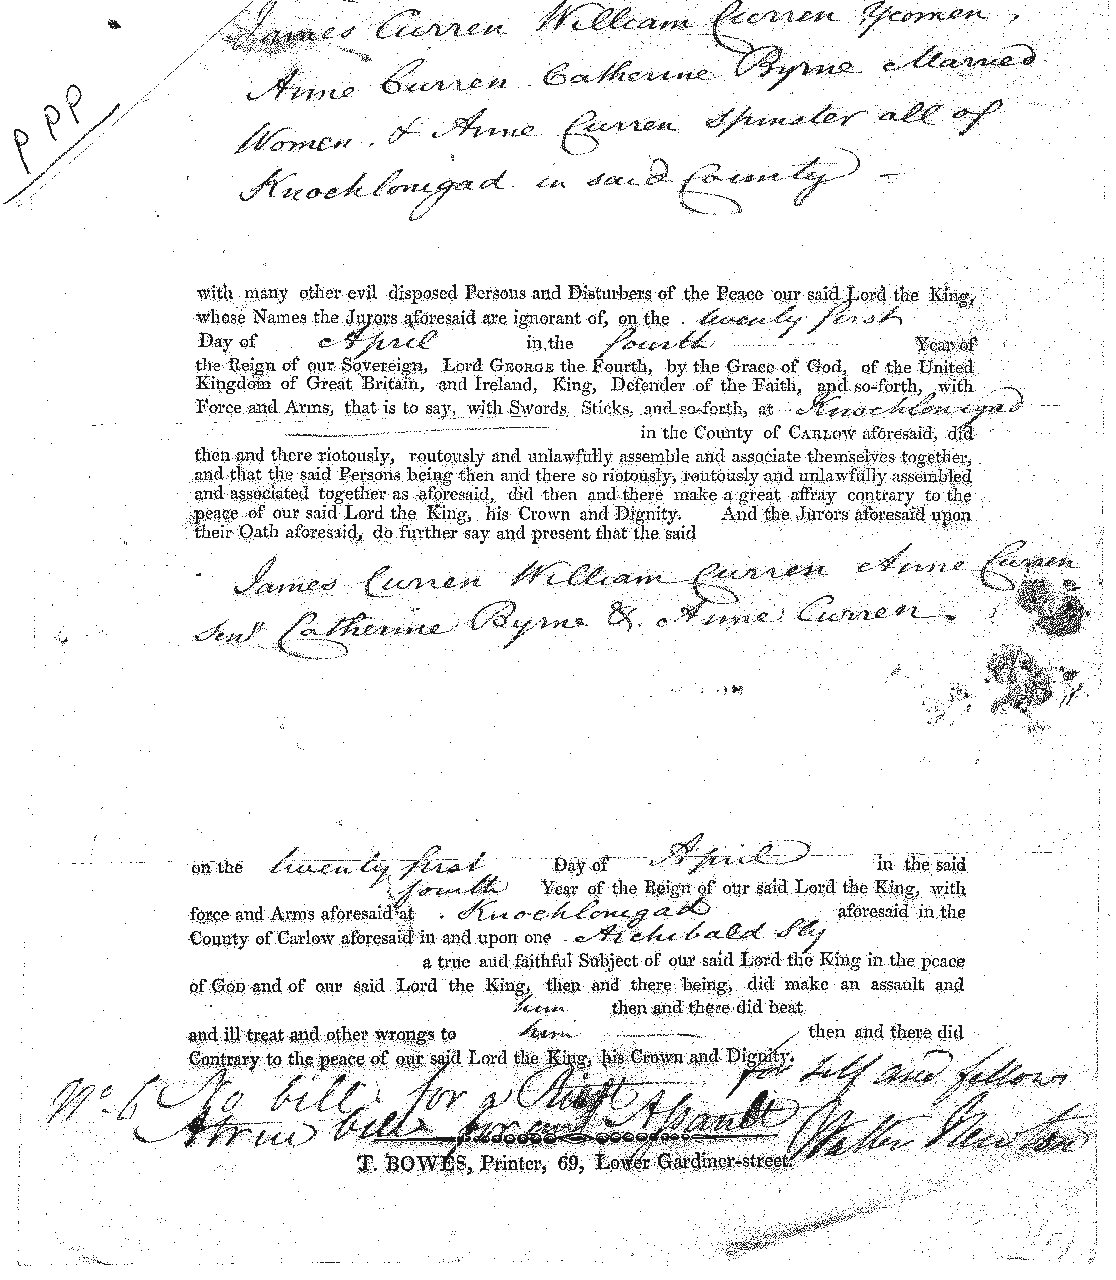 James Curren William Curren Yeomen,
Anne Curren Catherine Byrne Married
Women. & Anne Curren Spinster all of
Knocklonigad in said County -
P P P
with many other evil disposed Persons and Disturbers of the Peace our said Lord the King,
whose Names the Jurors aforesaid are ignorant of, on the twenty first
Day of April in the fourth Year of
the Reign of our Sovereign, Lord GEORGE the Fourth, by the Grace of God, of the United
Kingdom of Great Britain, and Ireland, King, Defender of the Faith, and so-forth, with
Force and Arms, that is to say, with Swords, Sticks, and so-forth, at Knocklonigad
in the County of CARLOW aforesaid, did
then and there riotously, routously and unlawfully assemble and associate themselves together,
and that the said Persons being then and there so riotously, routously and unlawfully assembled
and associated together as aforesaid, did then and there make a great affray contrary to the
peace of our said Lord the King, his Crown and Dignity. And the Jurors aforesaid upon
their Oath aforesaid, do further say and present that the said
James Curren William Curren Anne Curren
Senr Catherine Byrne & Anne Curren.
on the twenty first Day of April in the said
fourth Year of the Reign of our said Lord the King, with
force and Arms aforesaid at Knocklonigad aforesaid in the
County of Carlow aforesaid in and upon one Archibald Sly
a true and faithful Subject of our said Lord the King in the peace
of God and of our said Lord the King, then and there being, did make an assault and
him then and there did beat
and ill treat and other wrongs to him then and there did
Contrary to the peace of our said Lord the King, his Crown and Dignity.
No. 6 No bill for a Riot for self and fellows
A true bill for an Assault Walter Newton
T. BOWES, Printer, 69, Lower Gardiner-street.